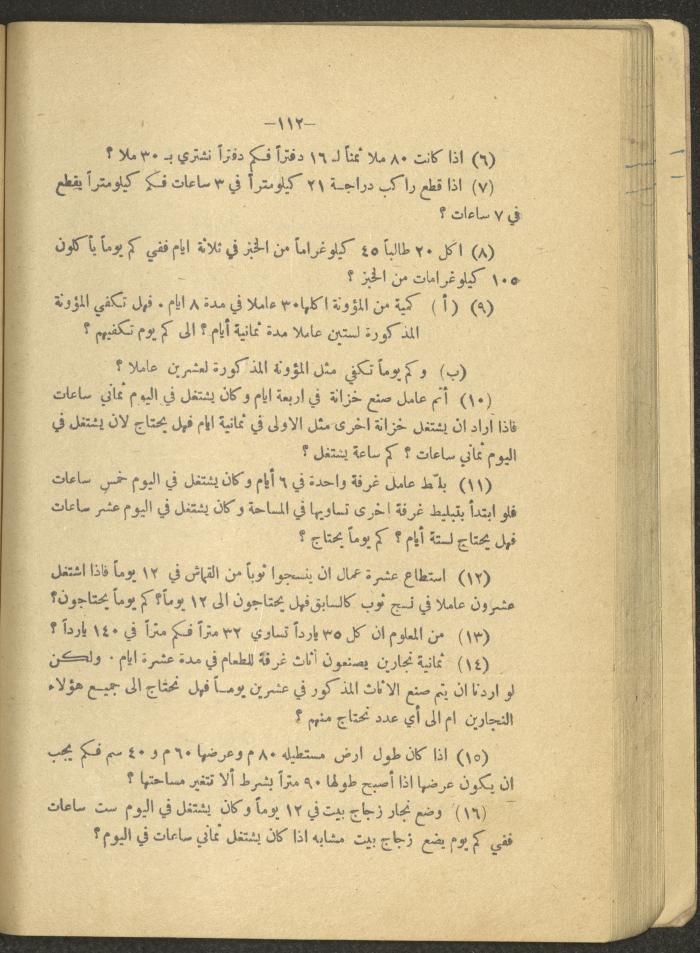 —١١٢—
(٦) اذا كانت ٨٠ ملا ثمناً لـ ١٦ دفتراً فكم دفتراً نشتري بـ ٣٠ ملا ؟
(٧) اذا قطع راكب دراجة ٢١ كيلومتراً في ٣ ساعات فكم كيلومتراً يقطع
في ٧ ساعات ؟
(٨) اكل ٢٠ طالباً ٤٥ كيلوغراماً من الخبز في ثلاثة ايام ففي كم يوماً يأكلون
١٠٥ كيلوغرامات من الخبز ؟
(٩) (أ) كمية من المؤونة اكلها ٣٠ عاملا في مدة ٨ ايام . فهل تكفي المؤونة
المذكورة لستين عاملا مدة ثمانية أيام ؟ الى كم يوم تكفيهم ؟
(ب) وكم يوماً تكفي مثل المؤونة المذكورة لعشرين عاملا ؟
(١٠) أتم عامل صنع خزانة في اربعة ايام وكان يشتغل في اليوم ثماني ساعات
فاذا اراد ان يشتغل خزانة اخرى مثل الاولى في ثمانية ايام فهل يحتاج لان يشتغل في
اليوم ثماني ساعات ؟ كم ساعة يشتغل ؟
(١١) بلّط عامل غرفة واحدة في ٦ أيام وكان يشتغل في اليوم خمس ساعات
فلو ابتدأ بتبليط غرفة اخرى تساويها في المساحة وكان يشتغل في اليوم عشر ساعات
فهل يحتاج لستة أيام ؟ كم يوماً يحتاج ؟
(١٢) استطاع عشرة عمال ان ينسجوا ثوباً من القماش في ١٢ يوماً فاذا اشتغل
عشرون عاملا في نسج ثوب كالسابق فهل يحتاجون الى ١٢ يوماً؟ كم يوماً يحتاجون؟
(١٣) من المعلوم ان كل ٣٥ يارداً تساوي ٣٢ متراً فكم متراً في ١٤٠ يارداً ؟
(١٤) ثمانية نجارين يصنعون أثاث غرفة للطعام في مدة عشرة ايام . ولكن
لو اردنا ان يتم صنع الاثاث المذكور في عشرين يوماً فهل نحتاج الى جميع هؤلاء
النجارين ام الى أي عدد نحتاج منهم ؟
(١٥) اذا كان طول ارض مستطيله ٨٠ م وعرضها ٦٠ م و ٤٠ سم فكم يجب
ان يكون عرضها اذا أصبح طولها ٩٠ متراً بشرط ألا تتغير مساحتها ؟
(١٦) وضع نجار زجاج بيت في ١٢ يوماً وكان يشتغل في اليوم ست ساعات
ففي كم يوم يضع زجاج بيت مشابه اذا كان يشتغل ثماني ساعات في اليوم ؟